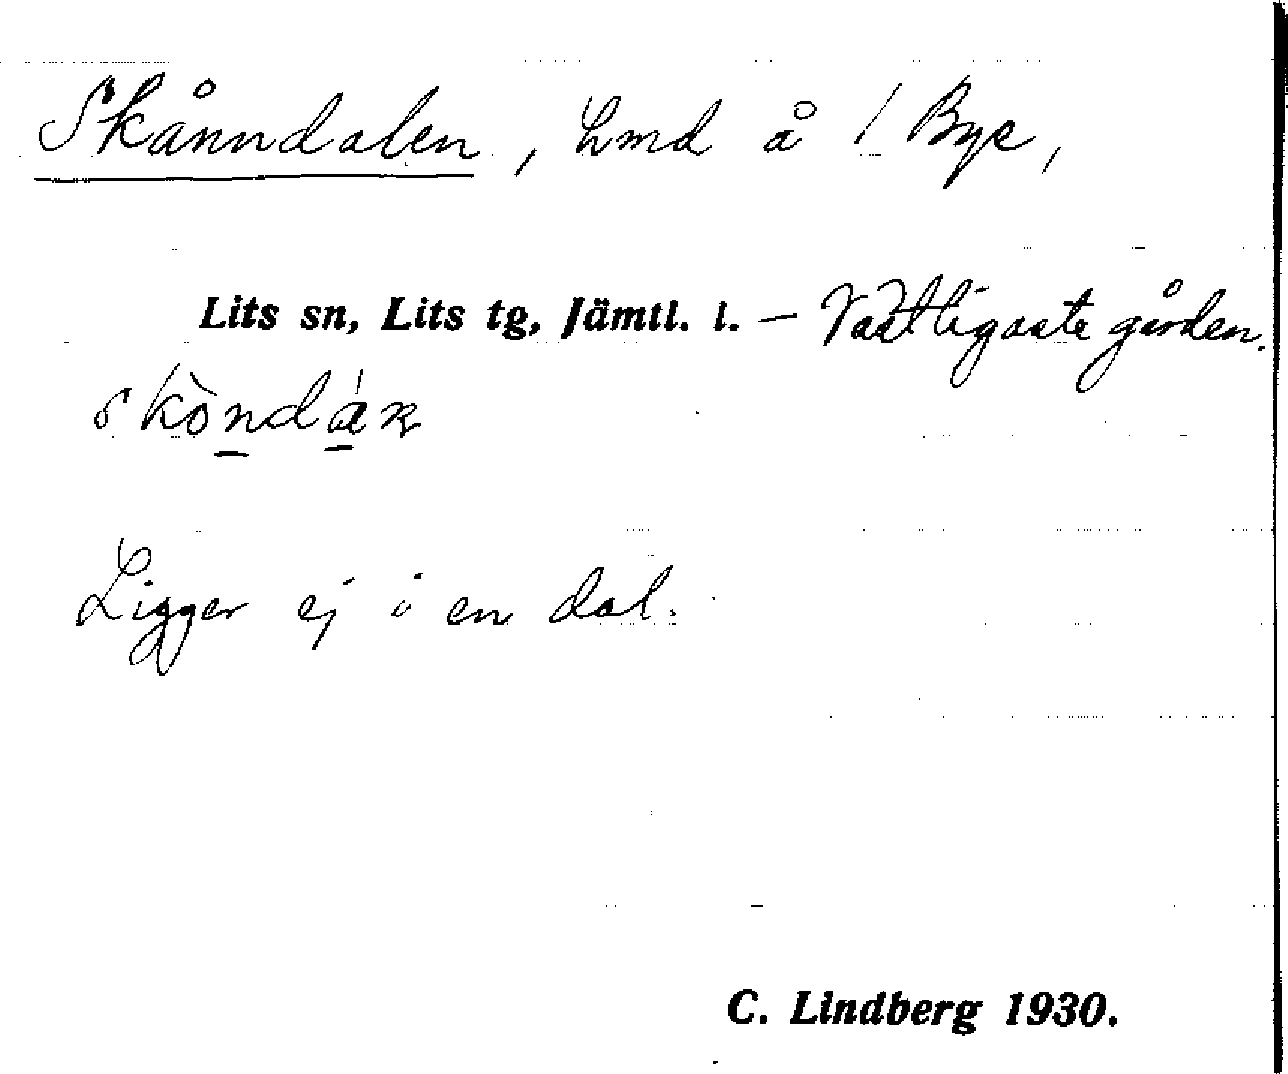 Skånndalen, Lmd å 1 Bye,
Lits sn, Lits tg, Jämtl. l. – Västligaste gården.
Ligger ej i en dal.
C. Lindberg 1930.